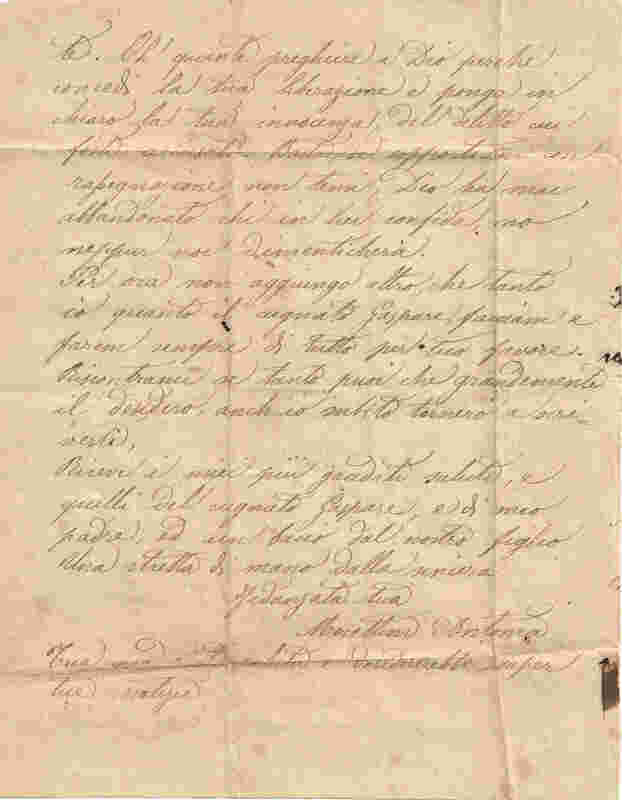 te. Oh! quante preghiere a Dio perche
concedi la tua liberazione e ponga in
chiaro la tua innocenza, del delitto cui
fosti
rassegnazione non temi, Dio ha mai
abbandonato chi in lui confida, ma
neppur noi dimenticherà.
Per ora non aggiungo altro, che tanto
io quanto il cugnato Gaspare, facciam e
farem sempre di tutto per tuo favore.
Riscontrami se tanto puoi che grandemente
il desidero, anch'io subito tornerò a scri-
verti,
Ricevi i miei più graditi saluti, e
quelli del cugnato Gaspare, e di mio
padre, ed un bacio dal nostro figlio
Una stretta di mano dalla sincera
Fidanzata tua
Antonia
Tua saper
tue notizie